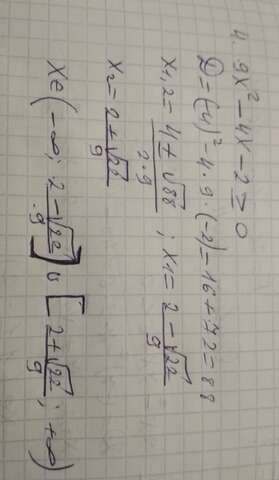 4. 9x² - 4x - 2 ≥ 0
D = (-4)² - 4 · 9 · (-2) = 16 + 72 = 88
x₁,₂ = (4 ± √88)/(2 · 9) ; x₁ = (2 - √22)/9
x₂ = (2 + √22)/9
x ∈ (-∞; (2 - √22)/9] ∪ [(2 + √22)/9; +∞)